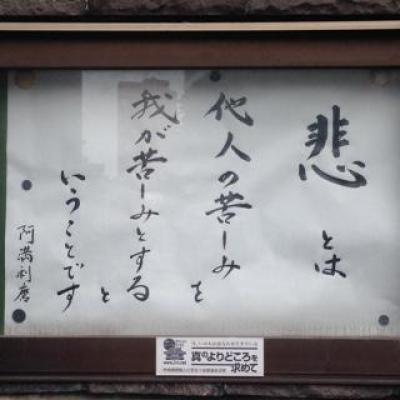 悲とは
他人の苦しみを
我が苦しみとすると
いうことです
阿満利麿
真のよりどころを
求めて